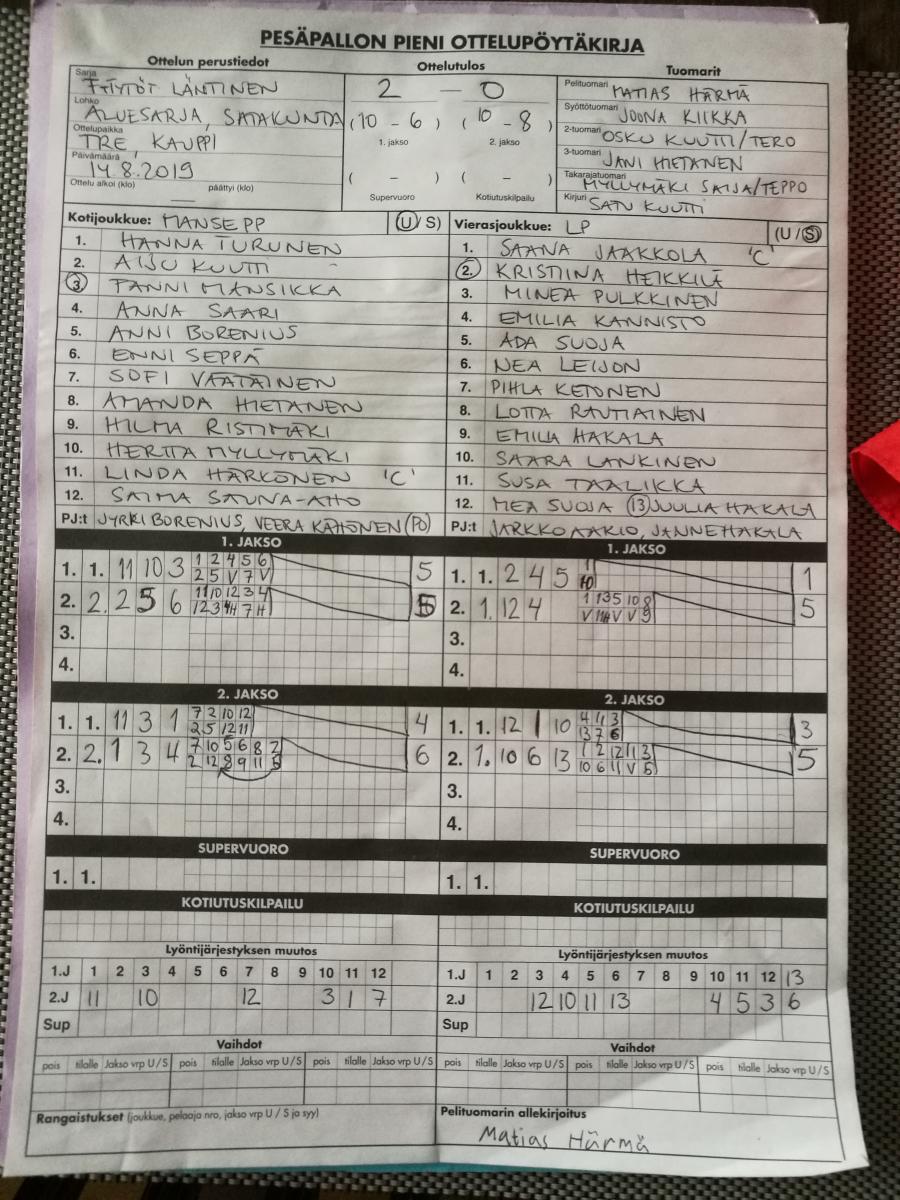 PESÄPALLON PIENI OTTELUPÖYTÄKIRJA
Ottelun perustiedot
Ottelutulos
Tuomarit
Sarja
LÄNTINEN
Lohko
ALUESARJA, SATAKUNTA
Ottelupaikka
TRE, KAUPPI
Päivämäärä
14.8.2019
Ottelu alkoi (klo) päättyi (klo)
2 — 0
(10 - 6) (10 - 8)
1. jakso 2. jakso
( - ) ( - )
Supervuoro Kotiutuskilpailu
Pelituomari MATIAS HÄRMÄ
Syöttötuomari JOONA KIIKKA
2-tuomari OSKU KUUTTI/TERO
3-tuomari JANI HIETANEN
Takarajatuomari MYLLYMÄKI SAIJA/TEPPO
Kirjuri SATU KUUTTI
Kotijoukkue: MANSE PP (U/S)
1. HANNA TURUNEN
2. AIJU KUUTTI
3 FANNI MANSIKKA
4. ANNA SAARI
5. ANNI BORENIUS
6. ENNI SEPPÄ
7. SOFI VÄÄTÄINEN
8. AMANDA HIETANEN
9. HILMA RISTIMÄKI
10. HERTTA MYLLYMÄKI
11. LINDA HÄRKÖNEN 'C'
12. SAIMA SAUNA-AHO
PJ:t JYRKI BORENIUS, VEERA KÄHÖNEN (PO)
Vierasjoukkue: LP (U/S)
1. SAANA JAAKKOLA 'C'
2. KRISTIINA HEIKKILÄ
3. MINEA PULKKINEN
4. EMILIA KANNISTO
5. ADA SUOJA
6. NEA LEIJON
7. PIHLA KETONEN
8. LOTTA RAUTIAINEN
9. EMILIA HAKALA
10. SAARA LANKINEN
11. SUSA TAALIKKA
12. MEA SUOJA 13 JUULIA HAKALA
PJ:t JARKKO AAKIO, JANNE HAKALA
1. JAKSO
1. 1. 11 10 3 1 2 4 5 6 5
2 5 V 7 V
2. 2. 2 5 6 11 10 12 3 4
3.
4.
1. JAKSO
1. 1. 2 4 5 1 1
10
2. 1. 12 4 1 13 5 10 8 5
3.
4.
2. JAKSO
1. 1. 11 3 1 7 2 10 12 4
2 5 12 11
2. 2. 1 3 4 7 10 5 6 8 2 6
3.
4.
2. JAKSO
1. 1. 12 1 10 4 11 3 3
13 7 6
2. 1. 10 6 13 1 2 12 11 3 5
10 6 11 V 5
3.
4.
SUPERVUORO
1. 1.
SUPERVUORO
1. 1.
KOTIUTUSKILPAILU
KOTIUTUSKILPAILU
Lyöntijärjestyksen muutos
1.J 1 2 3 4 5 6 7 8 9 10 11 12
2.J 11 10 12 3 1 7
Sup
Lyöntijärjestyksen muutos
1.J 1 2 3 4 5 6 7 8 9 10 11 12 13
2.J 12 10 11 13 4 5 3 6
Sup
Vaihdot
pois tilalle Jakso vrp U/S pois tilalle Jakso vrp U/S pois tilalle Jakso vrp U/S
Vaihdot
pois tilalle Jakso vrp U/S pois tilalle Jakso vrp U/S pois tilalle Jakso vrp U/S
Rangaistukset (joukkue, pelaaja nro, jakso vrp U / S ja syy)
Pelituomarin allekirjoitus
Matias Härmä